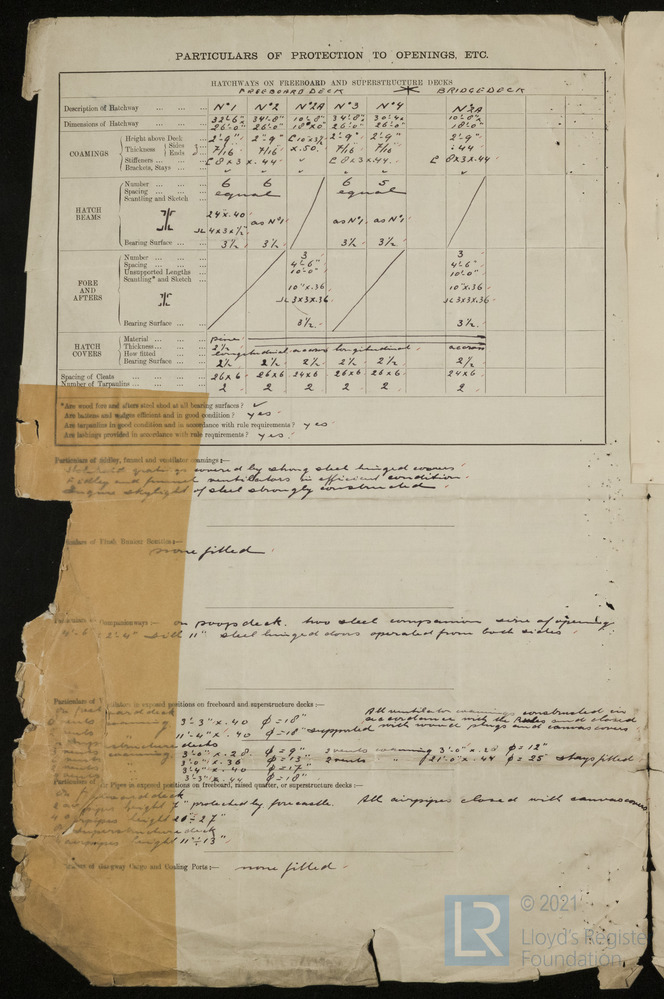 PARTICULARS OF PROTECTION TO OPENINGS, ETC.
HATCHWAYS ON FREEBOARD AND SUPERSTRUCTURE DECKS
FREEBOARD DECK BRIDGE DECK
Description of Hatchway Nº1 Nº2 Nº2A Nº3 Nº4 Nº2A
Dimensions of Hatchway 34'-8" 10'-8" 34'-8" 10'-8"
26'-0" 26'-0" 26'-0" 26'-0" 18'-0"
COAMINGS
Height above Deck 2'-9" 2'-9" 2'-9" 2'-9" 2'-9"
Thickness Sides Ends 7/16 7/16 x.50 7/16 7/16 .44
Stiffeners 8x3x.44 8x3x.44 8x3x.44
Brackets, Stays
HATCH BEAMS
Number 6 6 6 5
Spacing equal equal
Scantling and Sketch
24x.40 as Nº1 as Nº1 as Nº1
4x3x1/2
Bearing Surface 3½ 3½ 3½ 3½
FORE AND AFTERS
Number 3 3
Spacing 4'-6" 4'-6"
Unsupported Lengths 10'-0" 10'-0"
Scantling* and Sketch 10"x.36 10"x.36
3x3x.36 3x3x.36
Bearing Surface 3½ 3½
HATCH COVERS
Material pine
Thickness 2½
How fitted longitudinal across longitudinal across
Bearing Surface 2½ 2½ 2½ 2½ 2½ 2½
Spacing of Cleats 26x6 26x6 24x6 26x6 26x6 24x6
Number of Tarpaulins 2 2 2 2 2 2
*Are wood fore and afters steel shod at all bearing surfaces? ✓
Are battens and wedges efficient and in good condition? yes
Are tarpaulins in good condition and in accordance with rule requirements? yes
Are lashings provided in accordance with rule requirements? yes
Particulars of fiddley, funnel and ventilator coamings:—
gratings covered by strong steel hinged covers
Fidley and funnel ventilators in efficient condition.
Engine skylight of steel strongly constructed
of Flush Bunker Scuttles:—
none fitted
Companionways:— on poop deck. two steel companion size of opening
2'-4" with 11" steel hinged doors operated from both sides
Particulars of in exposed positions on freeboard and superstructure decks:—
All ventilator coamings constructed in
accordance with the Rules and closed
with wood plugs and canvas covers
coaming 3'-3" x .40 φ=18"
11'-4" x .40 φ=18" supported
structure decks
coaming 3'-0" x .28 φ=9" 2 vents coaming 3'-0" x .28 φ=12"
3'-0" x .36 φ=13" 2 vents " 21'-0" x .44 φ=25" stays fitted
3'-4" x .40 φ=17"
3'-3" x .44 φ=18"
Particulars of Air Pipes in exposed positions on freeboard, raised quarter, or superstructure decks:—
height 7" protected by forecastle. All airpipes closed with canvas covers
airpipes height 20÷27"
superstructure deck
airpipes height 11÷13"
of Gangway Cargo and Coaling Ports:— none fitted
LR
© 2021
Lloyd's Register
Foundation